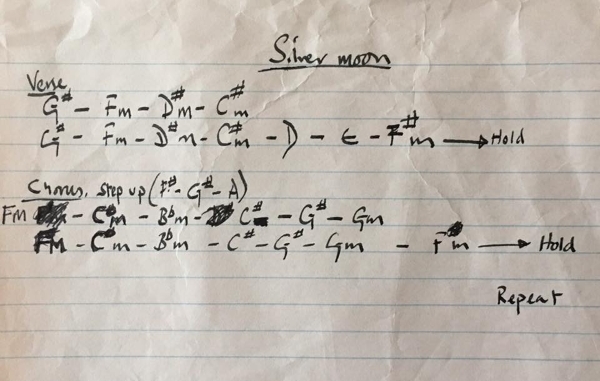 Silver moon
Verse
G# - Fm - D#m - C#m
G# - Fm - D#m - C#m - D - E - F#m → Hold
Chorus, step up (F# - G# - A)
Fm - Cm - Bbm - C# - G# - Gm
Fm - Cm - Bbm - C# - G# - Gm - Fm → Hold
Repeat